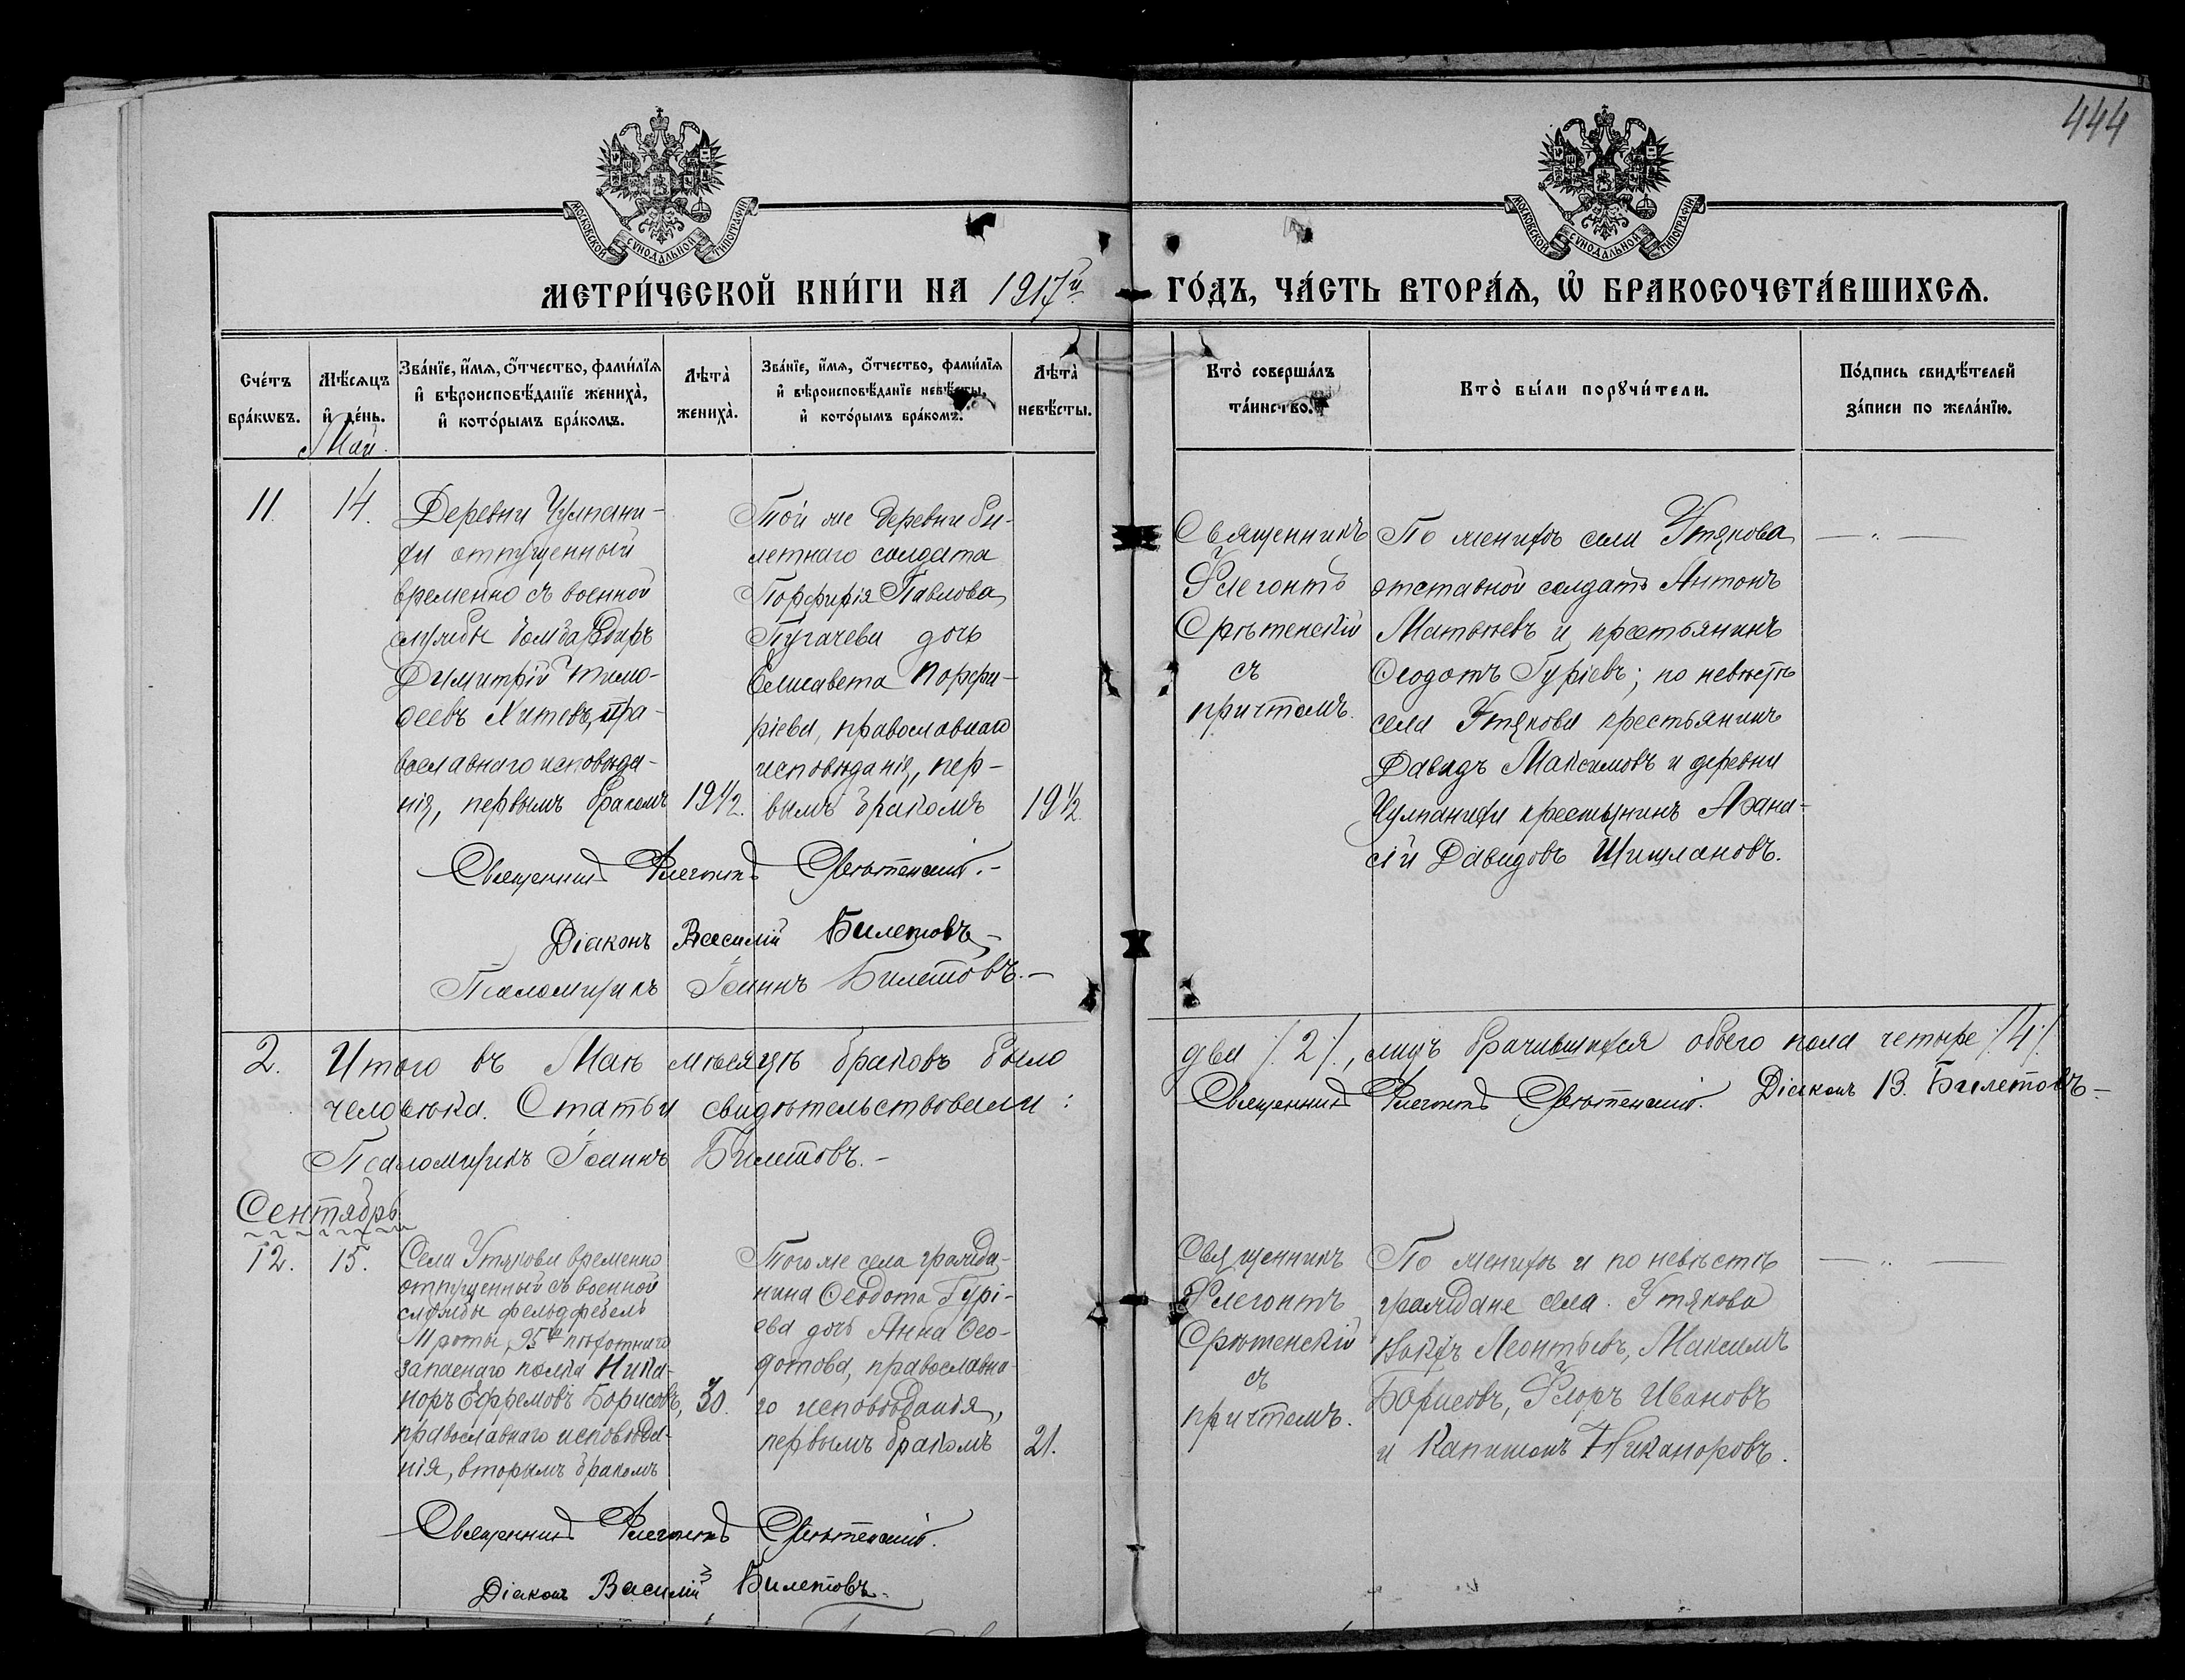 444
МОСКОВСКОЙ СѴНОДАЛЬНОЙ ТИПОГРАФІИ
МОСКОВСКОЙ СѴНОДАЛЬНОЙ ТИПОГРАФІИ
МЕТРИ́ЧЕСКОЙ КНИ́ГИ НА 1917й ГО́ДЪ, ЧА́СТЬ ВТОРА́Ѧ, Ѽ БРАКОСОЧЕТА́ВШИХСѦ.
Сче́тъ бра́кѡвъ.
Мѣ́сѧцъ и҆ де́нь.
Зва́нїе, и҆́мѧ, ѻ҆́тчество, фами́лїѧ и҆ вѣроисповѣ́данїе женихà, и҆ кото́рымъ бра́комъ.
Лѣтà женихà.
Зва́нїе, и҆́мѧ, ѻ҆́тчество, фами́лїѧ и҆ вѣроисповѣ́данїе невѣ́сты, и҆ кото́рымъ бра́комъ.
Лѣтà невѣ́сты.
Кто̀ соверша́лъ та́инство.
Кто̀ бы́ли порꙋчи́тели.
По́дпись свидѣ́телей за́писи по жела́нїю.
Май.
11.
14.
Деревни Чулпани-
хи отпущенный
временно съ военной
службы бомбардиръ
Димитрій Тимо-
ѳеевъ Хитевъ, пра-
вославнаго исповѣда-
нія, первымъ бракомъ
19 1/2.
Той же деревни би-
летнаго солдата
Порфирія Павлова
Пугачева дочь
Елисавета Порфи-
ріева, православнаго
исповѣданія, пер-
вымъ бракомъ
19 1/2
Священникъ
Флегонтъ
Срѣтенскій
съ
причтомъ.
По женихѣ села Утякова
отставной солдатъ Антонъ
Матвѣевъ и крестьянинъ
Ѳеодотъ Гуріевъ; по невѣстѣ
села Утякова крестьянинъ
Давидъ Максимовъ и деревни
Чулпанихи крестьянинъ Аѳана-
сій Давидовъ Шишлановъ.
— " —
Священникъ Флегонтъ Срѣтенскій. -
Діаконъ Василій Билетовъ -
Псаломщикъ Іоаннъ Билетовъ. -
2. Итого въ Маѣ мѣсяцѣ браковъ было два /.2./, лицъ брачившихся обоего пола четыре /.4./
человѣка. Статьи свидѣтельствовали: Священникъ Флегонтъ Срѣтенскій. Діаконъ В. Билетовъ -
Псаломщикъ Іоаннъ Билетовъ. -
Сентябрь.
12.
15.
Села Утякова временно
отпущенный съ военной
службы фельдфебель
роты, 95го пѣхотнаго
запаснаго полка Ника-
норъ Ефремовъ Борисовъ,
православнаго исповѣда-
нія, вторымъ бракомъ
30.
Того же села гражда-
нина Ѳеодота Гурі-
ева дочь Анна Ѳео-
дотова, православна-
го исповѣданія,
первымъ бракомъ
21.
Священникъ
Флегонтъ
Срѣтенскій
съ
причтомъ.
По женихѣ и по невѣстѣ
граждане села Утякова
Леонтьевъ, Максимъ
Борисовъ, Флоръ Ивановъ
и Капитонъ Никаноровъ.
— " —
Священникъ Флегонтъ Срѣтенскій.
Діаконъ Василій Билетовъ -